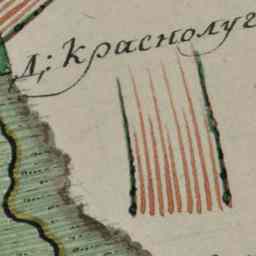 Д; Краснолуг